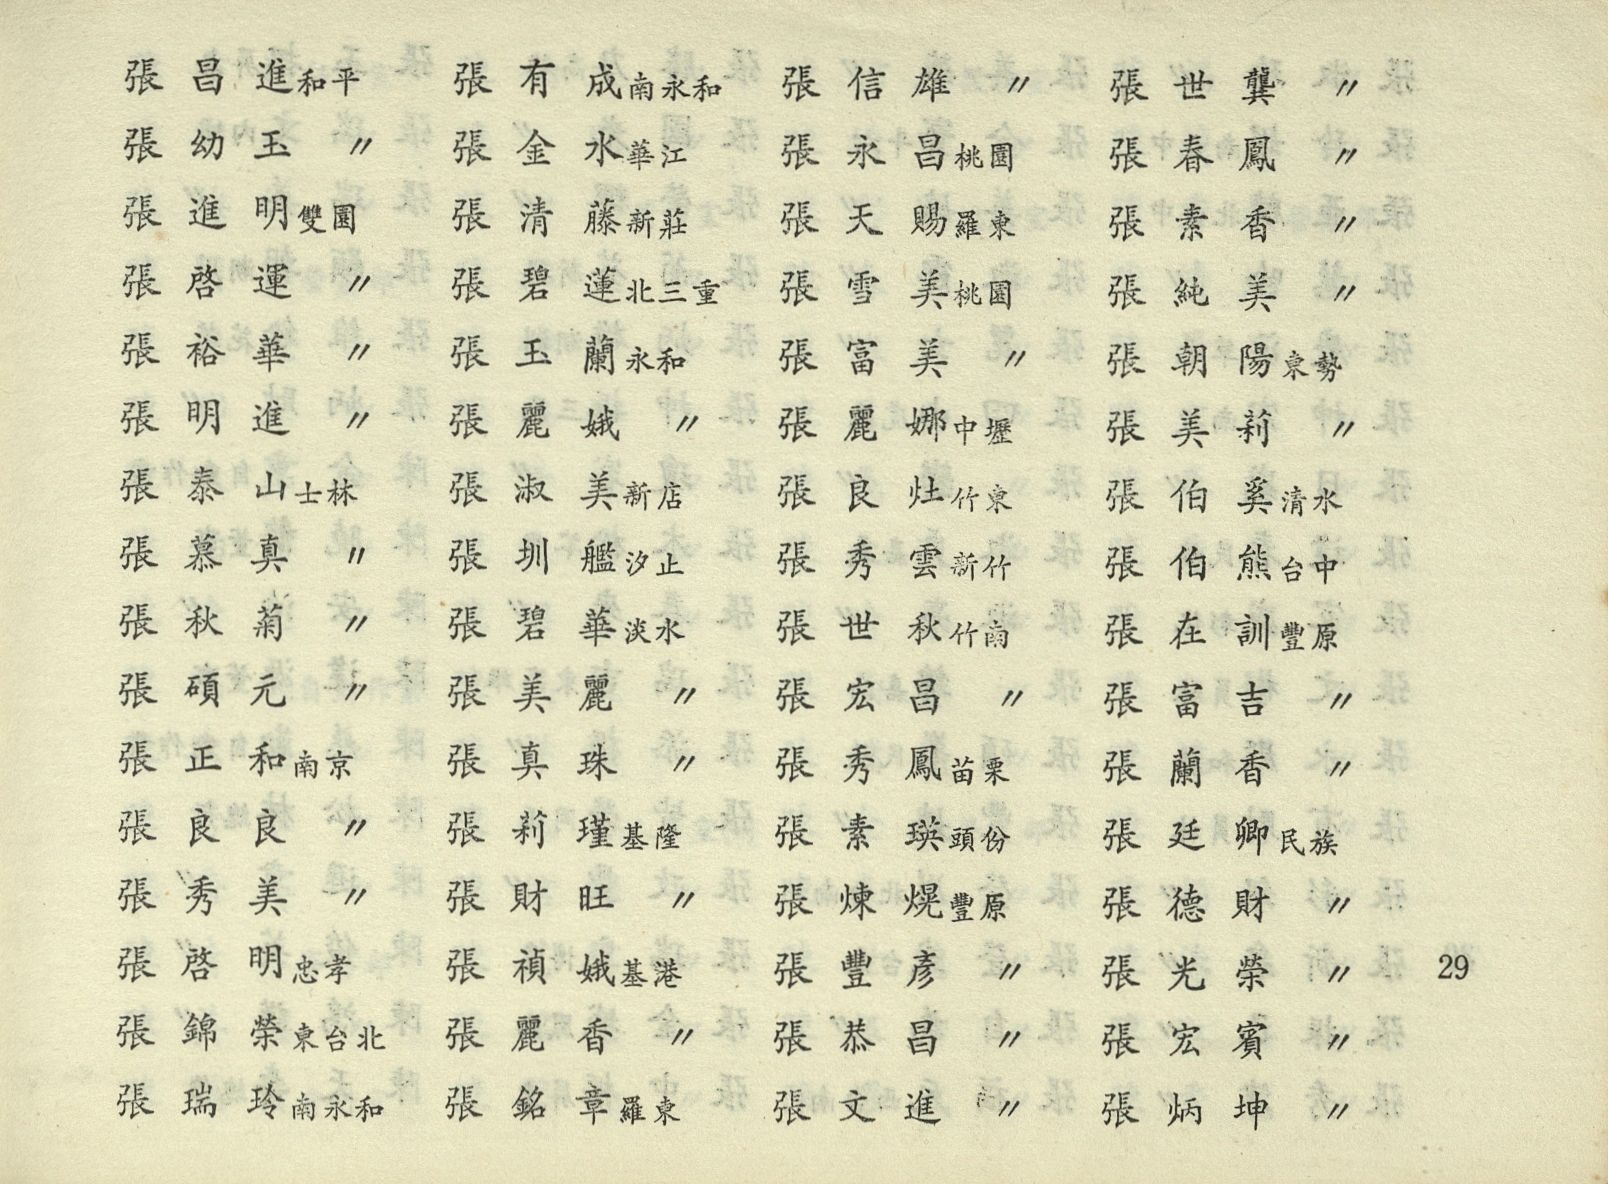 張昌進和平
張幼玉〃
張進明雙園
張啓運〃
張裕華〃
張明進〃
張泰山士林
張慕真〃
張秋菊〃
張碩元〃
張正和南京
張良良〃
張秀美〃
張啓明忠孝
張錦榮東台北
張瑞玲南永和
張有成南永和
張金水華江
張清藤新莊
張碧蓮北三重
張玉蘭永和
張麗娥〃
張淑美新店
張圳艦汐止
張碧華淡水
張美麗〃
張真珠〃
張莉瑾基隆
張財旺〃
張禎娥基港
張麗香〃
張銘章羅東
張信雄〃
張永昌桃園
張天賜羅東
張雪美桃園
張富美〃
張麗娜中壢
張良灶竹東
張秀雲新竹
張世秋竹南
張宏昌〃
張秀鳳苗栗
張素瑛頭份
張煉熀豐原
張豐彥〃
張恭昌〃
張文進〃
張世龔〃
張春鳳〃
張素香〃
張純美〃
張朝陽東勢
張美莉〃
張伯奚清水
張伯熊台中
張在訓豐原
張富吉〃
張蘭香〃
張廷卿民族
張德財〃
張光榮〃
張宏賓〃
張炳坤〃
29